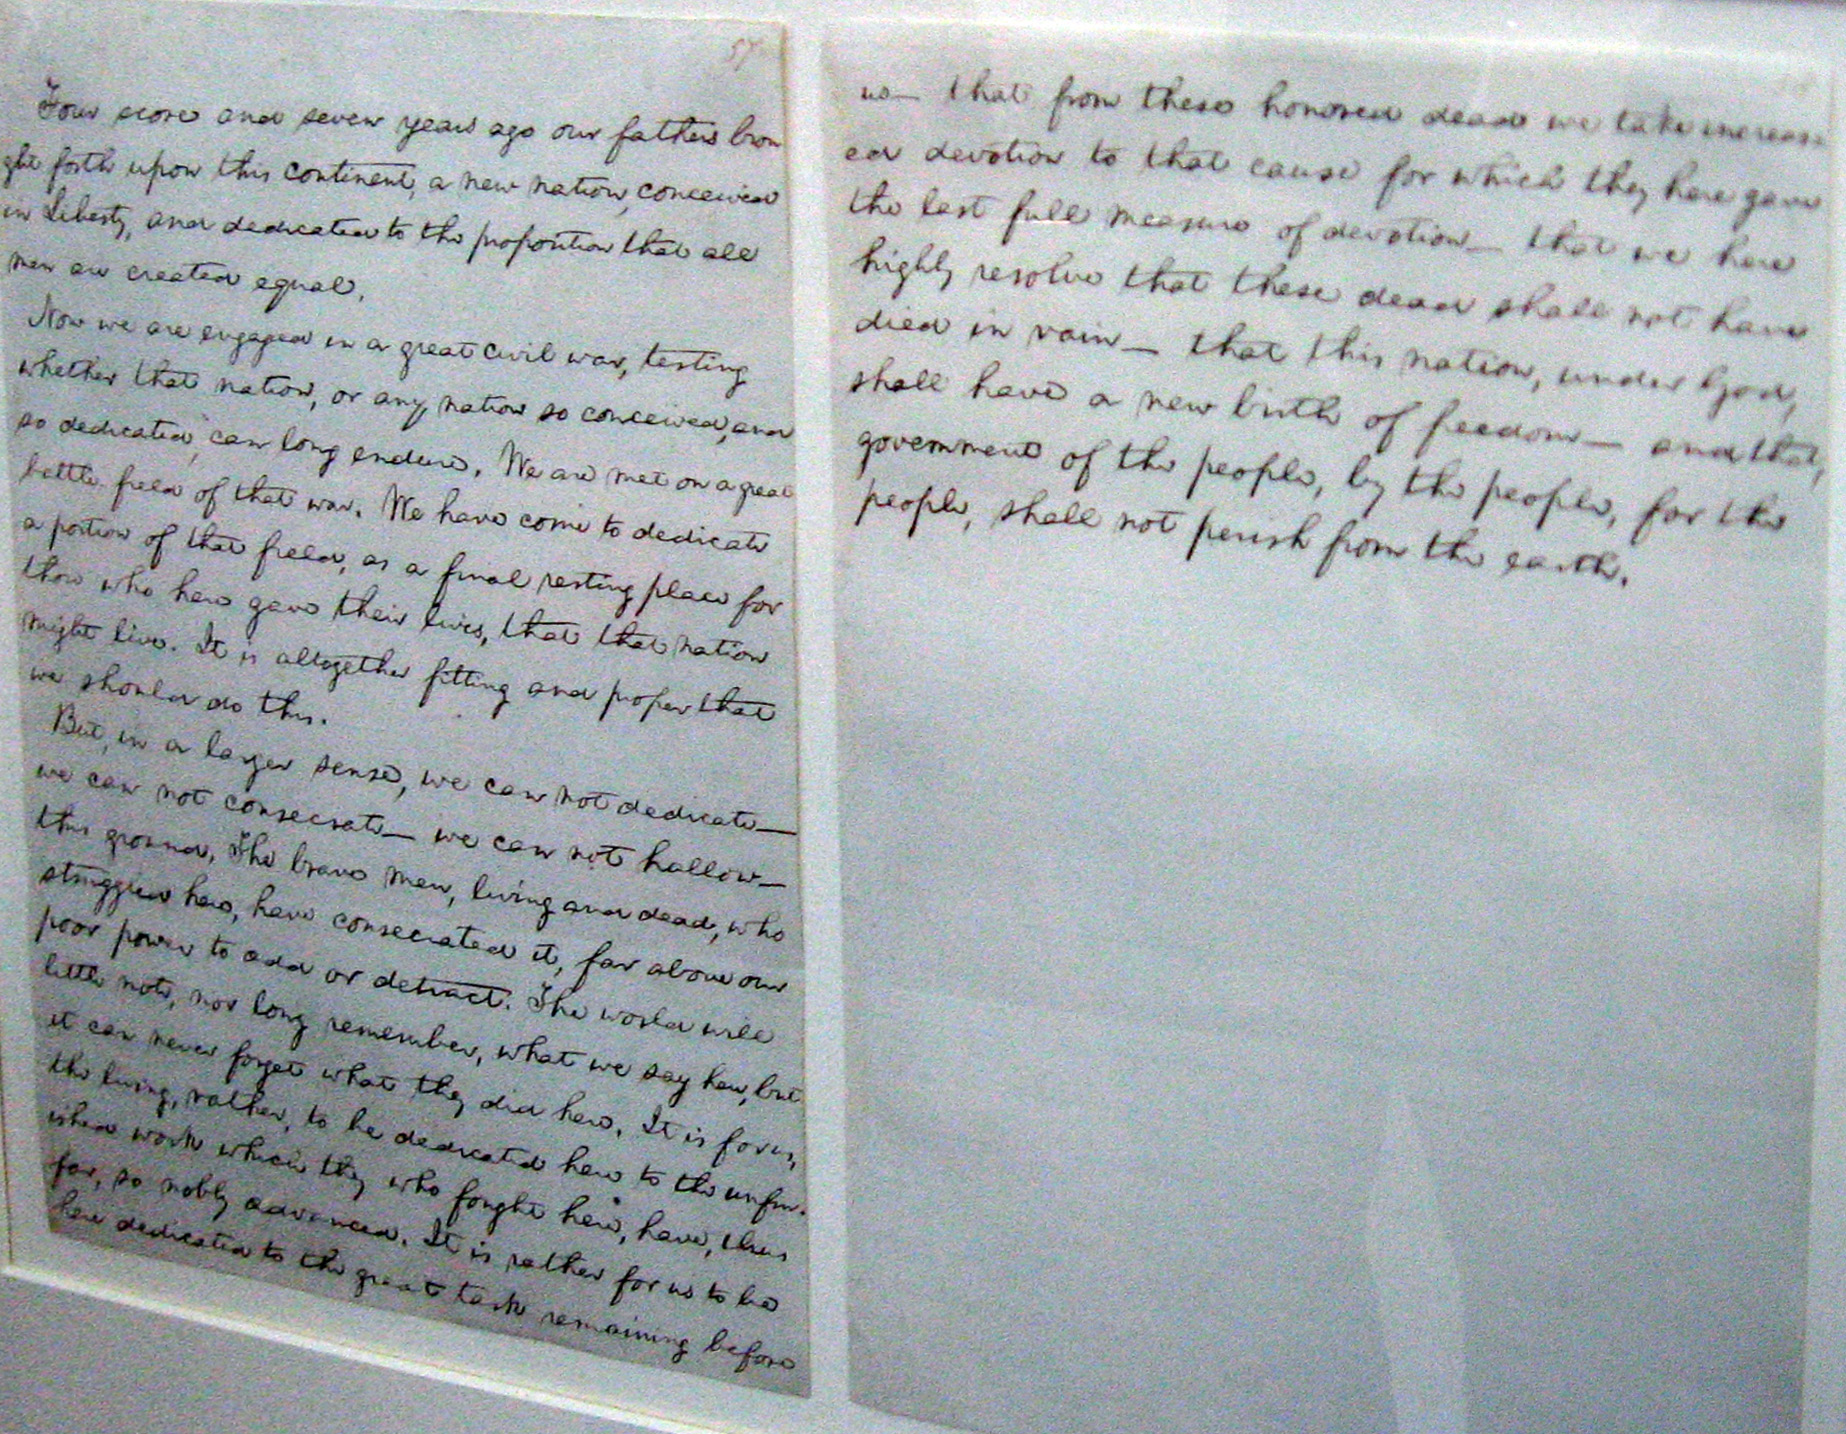 57
Four score and seven years ago our fathers brou
ght forth upon this continent, a new nation, conceived
in Liberty, and dedicated to the proposition that all
men are created equal.
Now we are engaged in a great civil war, testing
whether that nation, or any nation so conceived, and
so dedicated, can long endure. We are met on a great
battle-field of that war. We have come to dedicate
a portion of that field, as a final resting place for
those who here gave their lives, that that nation
might live. It is altogether fitting and proper that
we should do this.
But, in a larger sense, we can not dedicate—
we can not consecrate— we can not hallow—
this ground. The brave men, living and dead, who
struggled here, have consecrated it, far above our
poor power to add or detract. The world will
little note, nor long remember, what we say here, but
it can never forget what they did here. It is for us,
the living, rather, to be dedicated here to the unfin-
ished work which they who fought here, have, thus
far, so nobly advanced. It is rather for us to be
here dedicated to the great task remaining before
us— that from these honored dead we take increas
ed devotion to that cause for which they here gave
the last full measure of devotion— that we here
highly resolve that these dead shall not have
died in vain— that this nation, under God,
shall have a new birth of freedom— and that,
government of the people, by the people, for the
people, shall not perish from the earth.